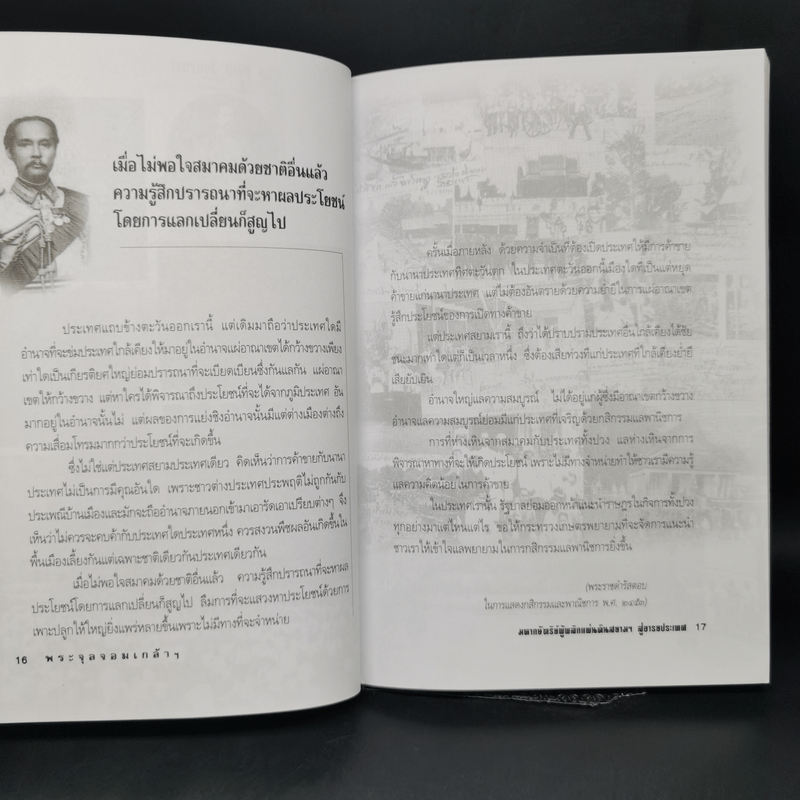 เมื่อไม่พอใจสมาคมด้วยชาติอื่นแล้ว
ความรู้สึกปรารถนาที่จะหาผลประโยชน์
โดยการแลกเปลี่ยนก็สูญไป
ประเทศแถบข้างตะวันออกเรานี้ แต่เดิมมาถือว่าประเทศใดมี
อำนาจที่จะข่มประเทศใกล้เคียงให้มาอยู่ในอำนาจแผ่อาณาเขตได้กว้างขวางเพียง
เท่าใดเป็นเกียรติยศใหญ่ย่อมปรารถนาที่จะเบียดเบียนซึ่งกันแลกัน แผ่อาณา
เขตให้กว้างขวาง แต่หาใครได้พิจารณาถึงประโยชน์ที่จะได้จากภูมิประเทศ อัน
มากอยู่ในอำนาจนั้นไม่ แต่ผลของการแย่งชิงอำนาจนั้นมีแต่ต่างเมืองต่างถึง
ความเสื่อมโทรมมากกว่าประโยชน์ที่จะเกิดขึ้น
ซึ่งไม่ใช่แต่ประเทศสยามประเทศเดียว คิดเห็นว่าการค้าขายกับนานา
ประเทศไม่เป็นการมีคุณอันใด เพราะชาวต่างประเทศประพฤติไม่ถูกกันกับ
ประเพณีบ้านเมืองและมักจะถืออำนาจภายนอกเข้ามาเอารัดเอาเปรียบต่างๆ จึง
เห็นว่าไม่ควรจะคบค้ากับประเทศใดประเทศหนึ่ง ควรสงวนพืชผลอันเกิดขึ้นใน
พื้นเมืองเลี้ยงกันแต่เฉพาะชาติเดียวกันประเทศเดียวกัน
เมื่อไม่พอใจสมาคมด้วยชาติอื่นแล้ว ความรู้สึกปรารถนาที่จะหาผล
ประโยชน์โดยการแลกเปลี่ยนก็สูญไป ลืมการที่จะแสวงหาประโยชน์ด้วยการ
เพาะปลูกให้ใหญ่ยิ่งแพร่หลายขึ้นเพราะไม่มีทางที่จะจำหน่าย
16 พระจุลจอมเกล้าฯ
ครั้นเมื่อภายหลัง ด้วยความจำเป็นที่ต้องเปิดประเทศให้มีการค้าขาย
กับนานาประเทศทิศตะวันตก ในประเทศตะวันออกนี้เมืองใดที่เป็นแต่หยุด
ค้าขายแก่นานาประเทศ แต่ไม่ต้องอันตรายด้วยความย่ำยีในการแผ่อาณาเขต
รู้สึกประโยชน์ของการเปิดทางค้าขาย
แต่ประเทศสยามเรานี้ ถึงว่าได้ปราบปรามประเทศอื่นใกล้เคียงได้ชัย
ชนะมากเท่าใดแต่ก็เป็นเวลาหนึ่ง ซึ่งต้องเสียท่วงทีแก่ประเทศที่ใกล้เคียงย่ำยี
เสียยับเยิน
อำนาจใหญ่แลความสมบูรณ์ ไม่ได้อยู่แก่ผู้ซึ่งมีอาณาเขตกว้างขวาง
อำนาจแลความสมบูรณ์ย่อมมีแก่ประเทศที่เจริญด้วยกสิกรรมแลพานิชการ
การที่ห่างเหินจากสมาคมกับประเทศทั้งปวง แลห่างเหินจากการ
พิจารณาหาทางที่จะให้เกิดประโยชน์ เพราะไม่มีทางจำหน่ายทำให้ชาวเรามีความรู้
แลความคิดน้อยไป ในการค้าขาย
ในประเทศเรานั้น รัฐบาลย่อมออกหน้าแนะนำราษฎรในกิจการทั้งปวง
ทุกอย่างมาแต่ไหนแต่ไร ขอให้กระทรวงเกษตรพยายามที่จะจัดการแนะนำ
ชาวเราให้เข้าใจแลพยายามในการกสิกรรมแลพานิชการยิ่งขึ้น
(พระราชดำรัสตอบ
ในการแสดงกสิกรรมและพาณิชการ พ.ศ. ๒๔๕๓)
มหากษัตริย์ผู้พลิกแผ่นดินสยามฯ สู่อารยประเทศ 17